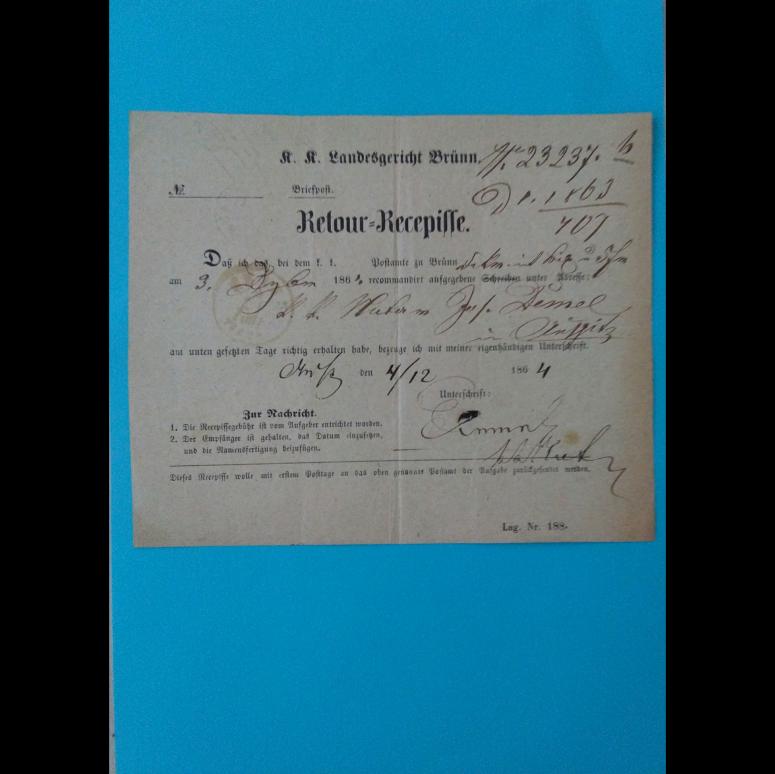 K. K. Landesgericht Brünn. Nr. 23237.
№ Briefpost. 1863
Retour-Recepisse. 407
Daß ich das, bei dem k. k. Postamte zu Brünn
am 3. 1864 recommandirt aufgegebene Schreiben unter Adresse:
k. k. Notar Jos. Demel
in Auspitz
am unten gesetzten Tage richtig erhalten habe, bezeuge ich mit meiner eigenhändigen Unterschrift.
den 4/12 1864
Unterschrift:
Zur Nachricht.
1. Die Recepissegebühr ist vom Aufgeber entrichtet worden.
2. Der Empfänger ist gehalten, das Datum einzusetzen,
und die Namensfertigung beizufügen.
Dieses Recepisse wolle mit erstem Posttage an das oben genannte Postamt der Aufgabe zurückgesendet werden.
Lag. Nr. 188.